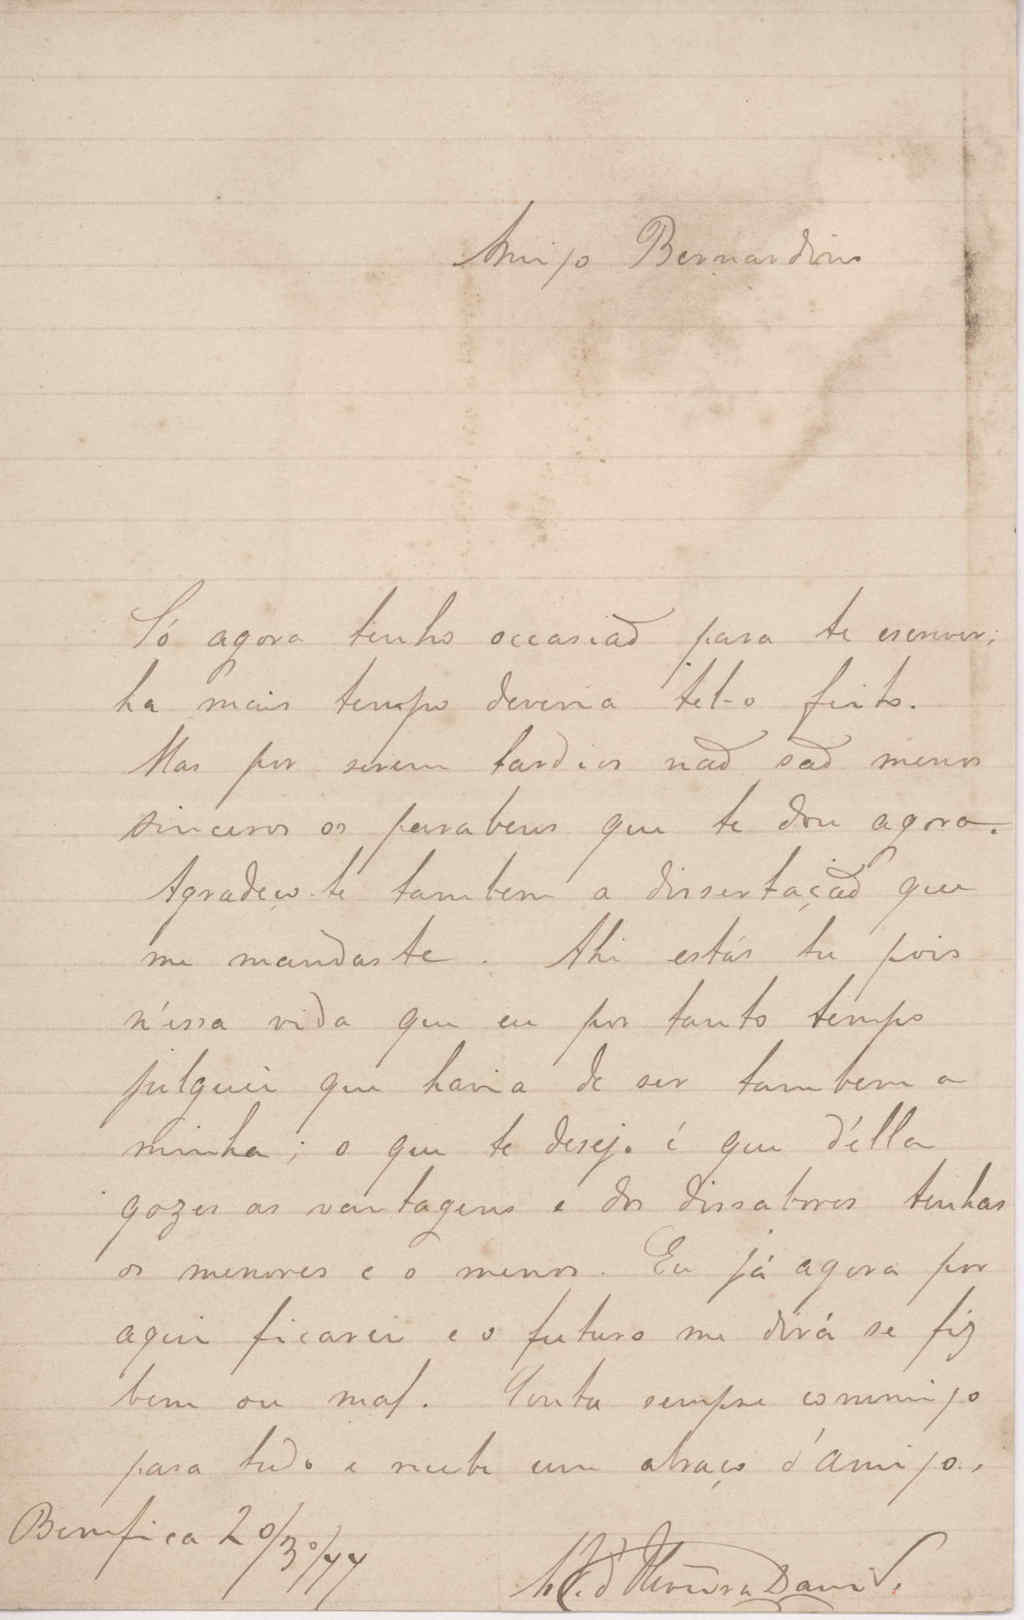 Amigo Bernardino
Só agora tenho occasião para te escrever;
ha mais tempo deveria tel-o feito.
Mas por serem tardios não são menos
sinceros os parabens que te dou agora.
Agradeço-te tambem a dissertação que
me mandaste. Ahi estás tu pois
n'essa vida que eu por tanto tempo
julguei que havia de ser tambem a
minha; o que te desejo é que d'élla
gozes as vantagens e dos dissabores tenhas
os menores e o menos. Eu já agora por
aqui ficarei e o futuro me dirá se fiz
bem ou mal. Conta sempre commigo
para tudo e recebe um abraço d'amigo.
Bemfica 20/3º/77
d'Oliveira David.